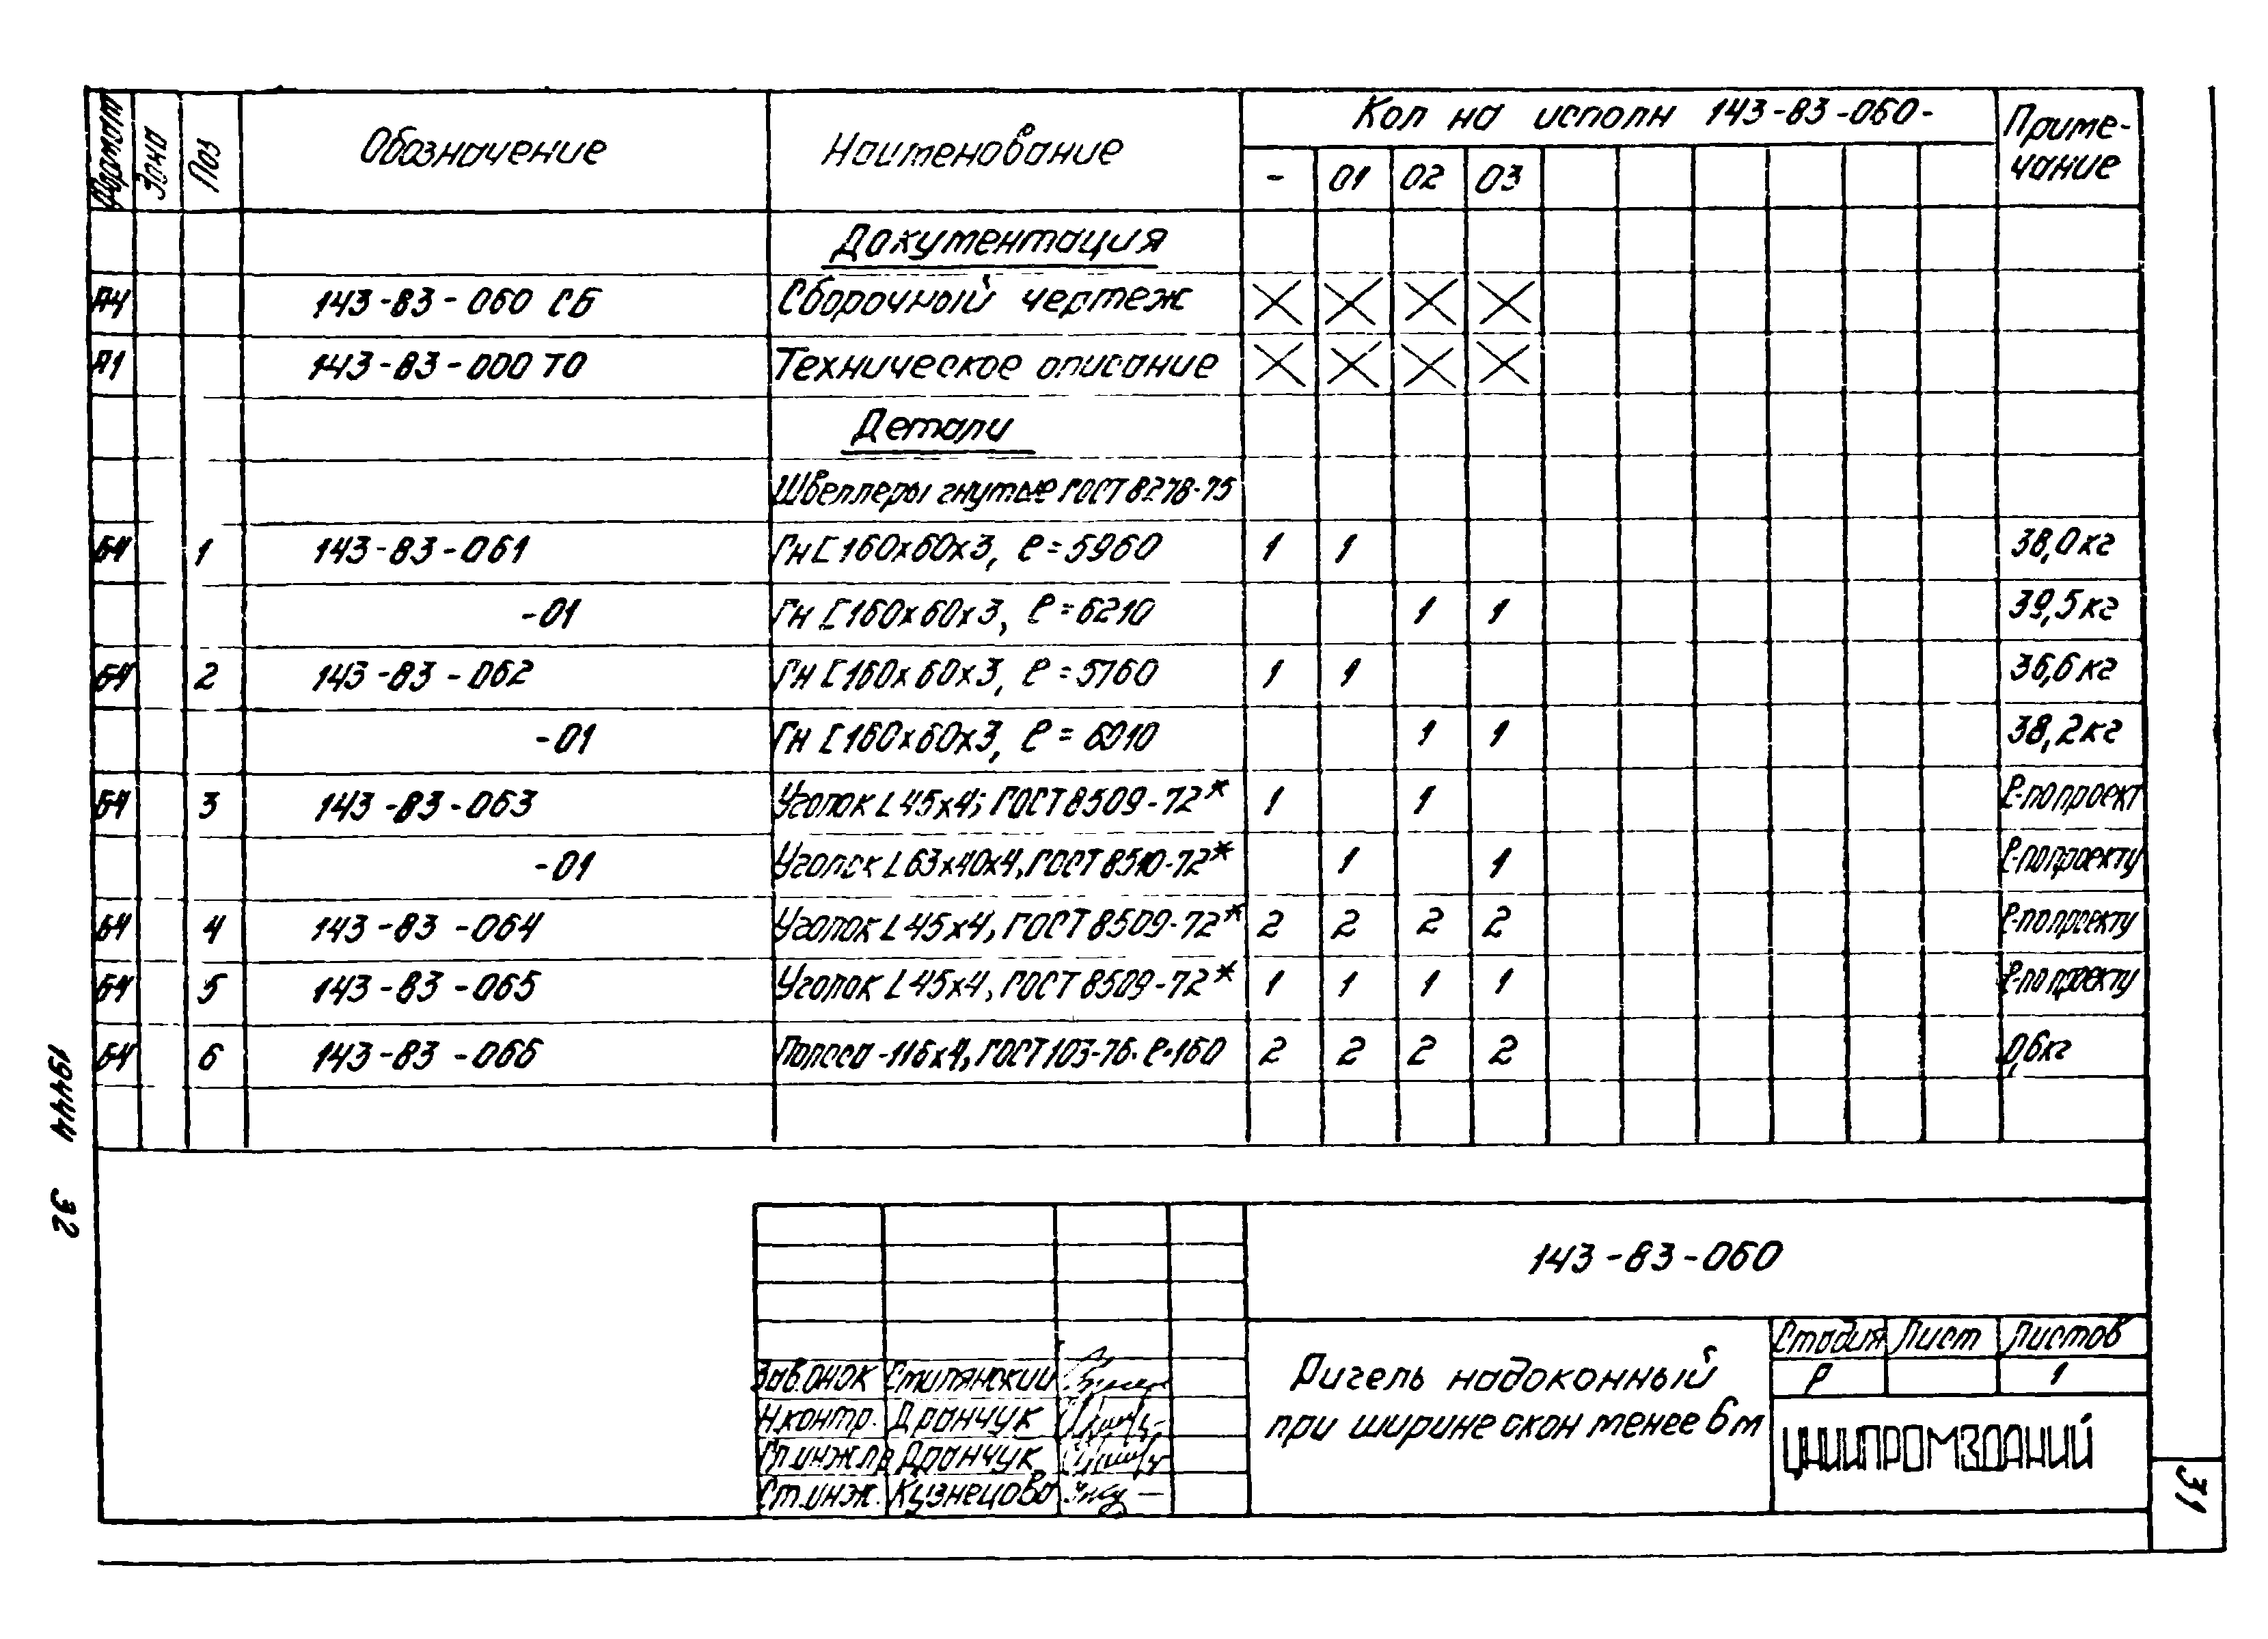 Формат Зона Поз Обозначение Наименование Кол на исполн 143-83-060- Приме-
чание
- 01 02 03
Документация
А4 143-83-060 СБ Сборочный чертеж
А1 143-83-000 ТО Техническое описание
Детали
Швеллеры гнутые ГОСТ 8278-75
БЧ 1 143-83-061 Гн [ 160х60х3, ℓ=5960 1 1 38,0кг
-01 Гн [ 160х60х3, ℓ=6210 1 1 39,5кг
БЧ 2 143-83-062 Гн [ 160х60х3, ℓ=5760 1 1 36,6кг
-01 Гн [ 160х60х3, ℓ=6010 1 1 38,2кг
БЧ 3 143-83-063 Уголок L 45х4; ГОСТ 8509-72* 1 1 ℓ-по проект
-01 Уголок L 63х40х4, ГОСТ 8510-72* 1 1 ℓ-по проекту
БЧ 4 143-83-064 Уголок L 45х4, ГОСТ 8509-72* 2 2 2 2 ℓ-по проекту
БЧ 5 143-83-065 Уголок L 45х4, ГОСТ 8509-72* 1 1 1 1 ℓ-по проекту
БЧ 6 143-83-066 Полоса -116х4, ГОСТ 103-76. ℓ=160 2 2 2 2 0,6кг
19444 32
143-83-060
Ригель надоконный
при ширине окон менее 6м
Стадия Лист Листов
Р 1
ЦНИИПРОМЗДАНИЙ
Зав.ОНОК Смилянский
Н.контр. Дранчук
Гл.инж.пр Дранчук
Ст.инж. Кузнецова
31